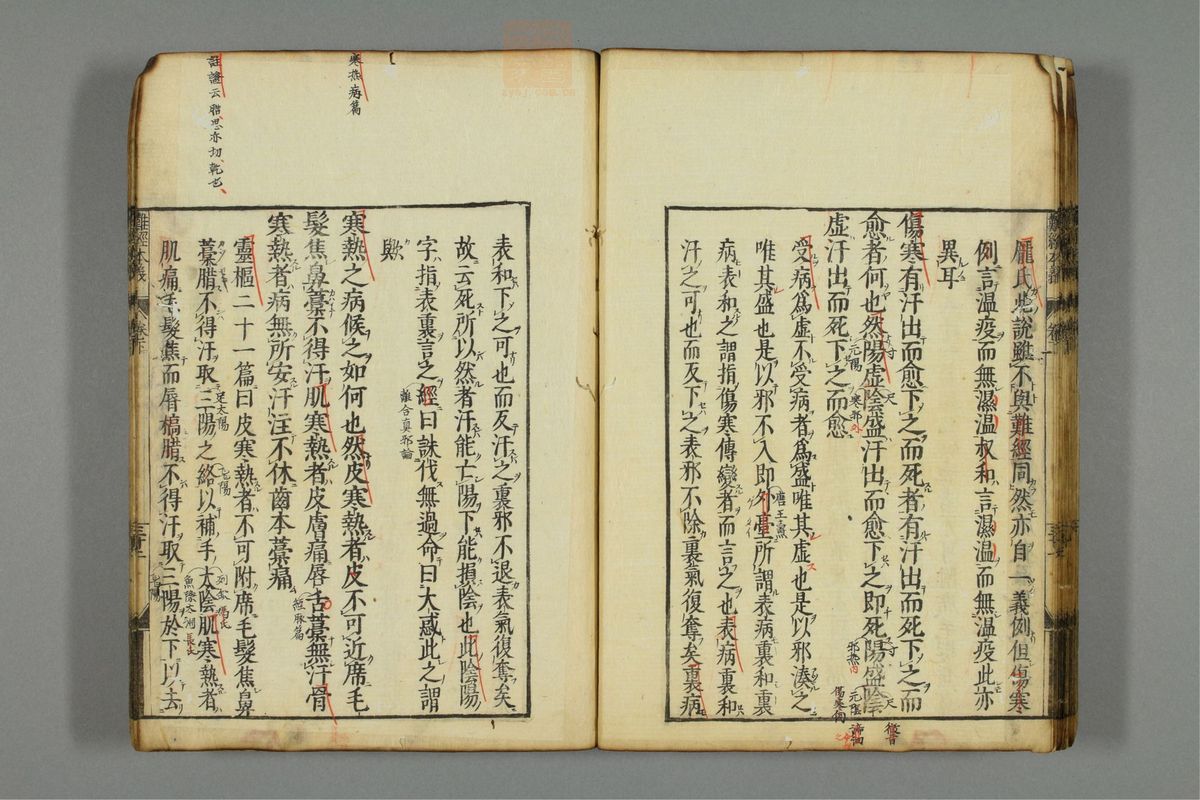 龐氏此說雖不與難經同然亦自一義例但傷寒
例言温疫而無濕温叔和言濕温而無温疫此亦
異耳
傷寒有汗出而愈下之而死者有汗出而死下之而
愈者何也然陽虛陰盛汗出而愈下之即死陽盛陰
虛汗出而死下之而愈
受病為虛不受病者為盛唯其虛也是以邪湊之
唯其盛也是以邪不入即外臺所謂表病裏和裏
病表和之謂指傷寒傳變者而言之也表病裏和
汗之可也而反下之表邪不除裏氣復奪矣裏病
表和下之可也而反汗之裏邪不退表氣復奪矣
故云死所以然者汗能亡陽下能損陰也此陰陽
字指表裏言之經曰誅伐無過命曰大惑此之謂
歟
寒熱之病候之如何也然皮寒熱者皮不可近席毛
髮焦鼻藁不得汗肌寒熱者皮膚痛唇舌藁無汗骨
寒熱者病無所安汗注不休齒本藁痛
靈樞二十一篇曰皮寒熱者不可附席毛髮焦鼻
藁腊不得汗取三陽之絡以補手太陰肌寒熱者
肌痛毛髮焦而唇槁腊不得汗取三陽於下以去
難經本義
卷下
寒熱病篇
註證云腊思亦切乾也
元陽
寒邪
唐王燾
離合真邪論
足太陽
經脉篇